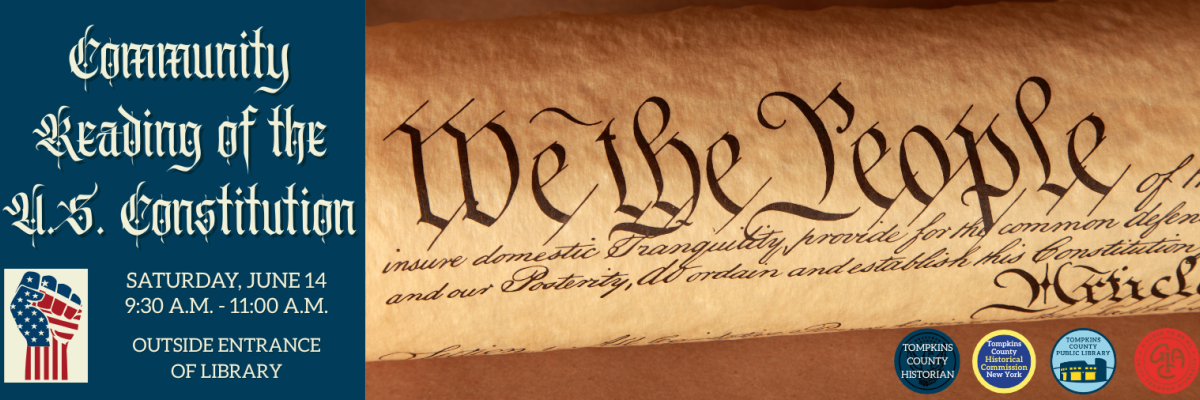 Community
Reading of the
U.S. Constitution
SATURDAY, JUNE 14
9:30 A.M. - 11:00 A.M.
OUTSIDE ENTRANCE
OF LIBRARY
We the People
of
insure domestic Tranquility, provide for the common
and our Posterity, do ordain and establish this Constitution
TOMPKINS
COUNTY
HISTORIAN
Tompkins
County
Historical
Commission
New York
TOMPKINS
COUNTY
PUBLIC LIBRARY